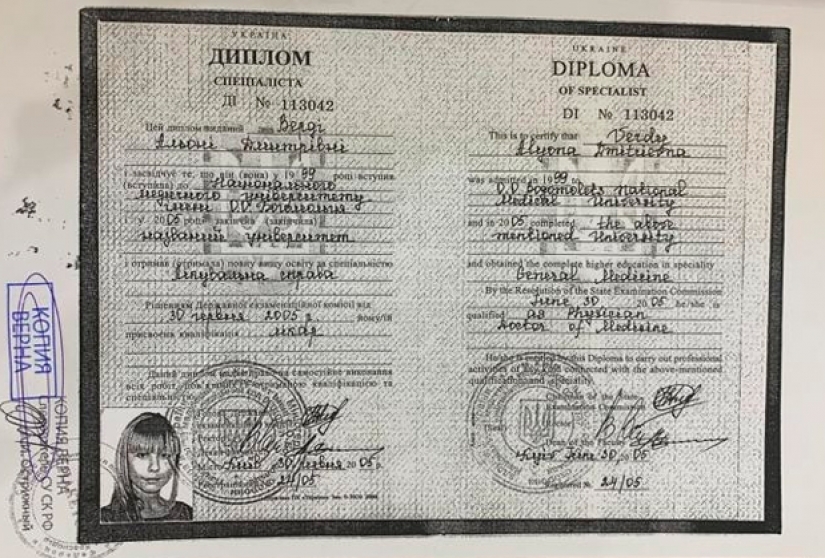 УКРАЇНА
ДИПЛОМ
СПЕЦІАЛІСТА
ДІ № 113042
Цей диплом виданий Вергі
Альоні Дмитрівні
і засвідчує те, що він (вона) у 1999 році вступив
(вступила) до Національного
медичного університету
імені О.О. Богомольця
і у 2005 році закінчив (закінчила)
названий університет
і отримав (отримала) повну вищу освіту за спеціальністю
Лікувальна справа
Рішенням Державної екзаменаційної комісії від
30 червня 2005 р. йому/їй
присвоєна кваліфікація лікар
Даний диплом дає право на самостійне виконання
всіх робіт, пов'язаних з отриманою кваліфікацією та
спеціальністю
Київ 30 червня 2005 р.
24/05
UKRAINE
DIPLOMA
OF SPECIALIST
DI № 113042
This is to certify that Verdy
Alyona Dmitrievna
was admitted in 1999 to
O.O. Bogomolets National
Medical University
and in 2005 completed the above
mentioned University
and obtained the complete higher education in speciality
General Medicine
By the Resolution of the State Examination Commission
June 30 2005 he/she is
qualified as Physician
Doctor of Medicine
He/she is entitled by this Diploma to carry out professional
activities of any kind connected with the above-mentioned
qualification and speciality.
Chairman of the State
Examination Commission
(Seal) Rector
Dean of the Faculty
Kyiv June 30, 2005
Registered № 24/05
КОПИЯ
ВЕРНА
КОПИЯ ВЕРНА
СУ СК РФ